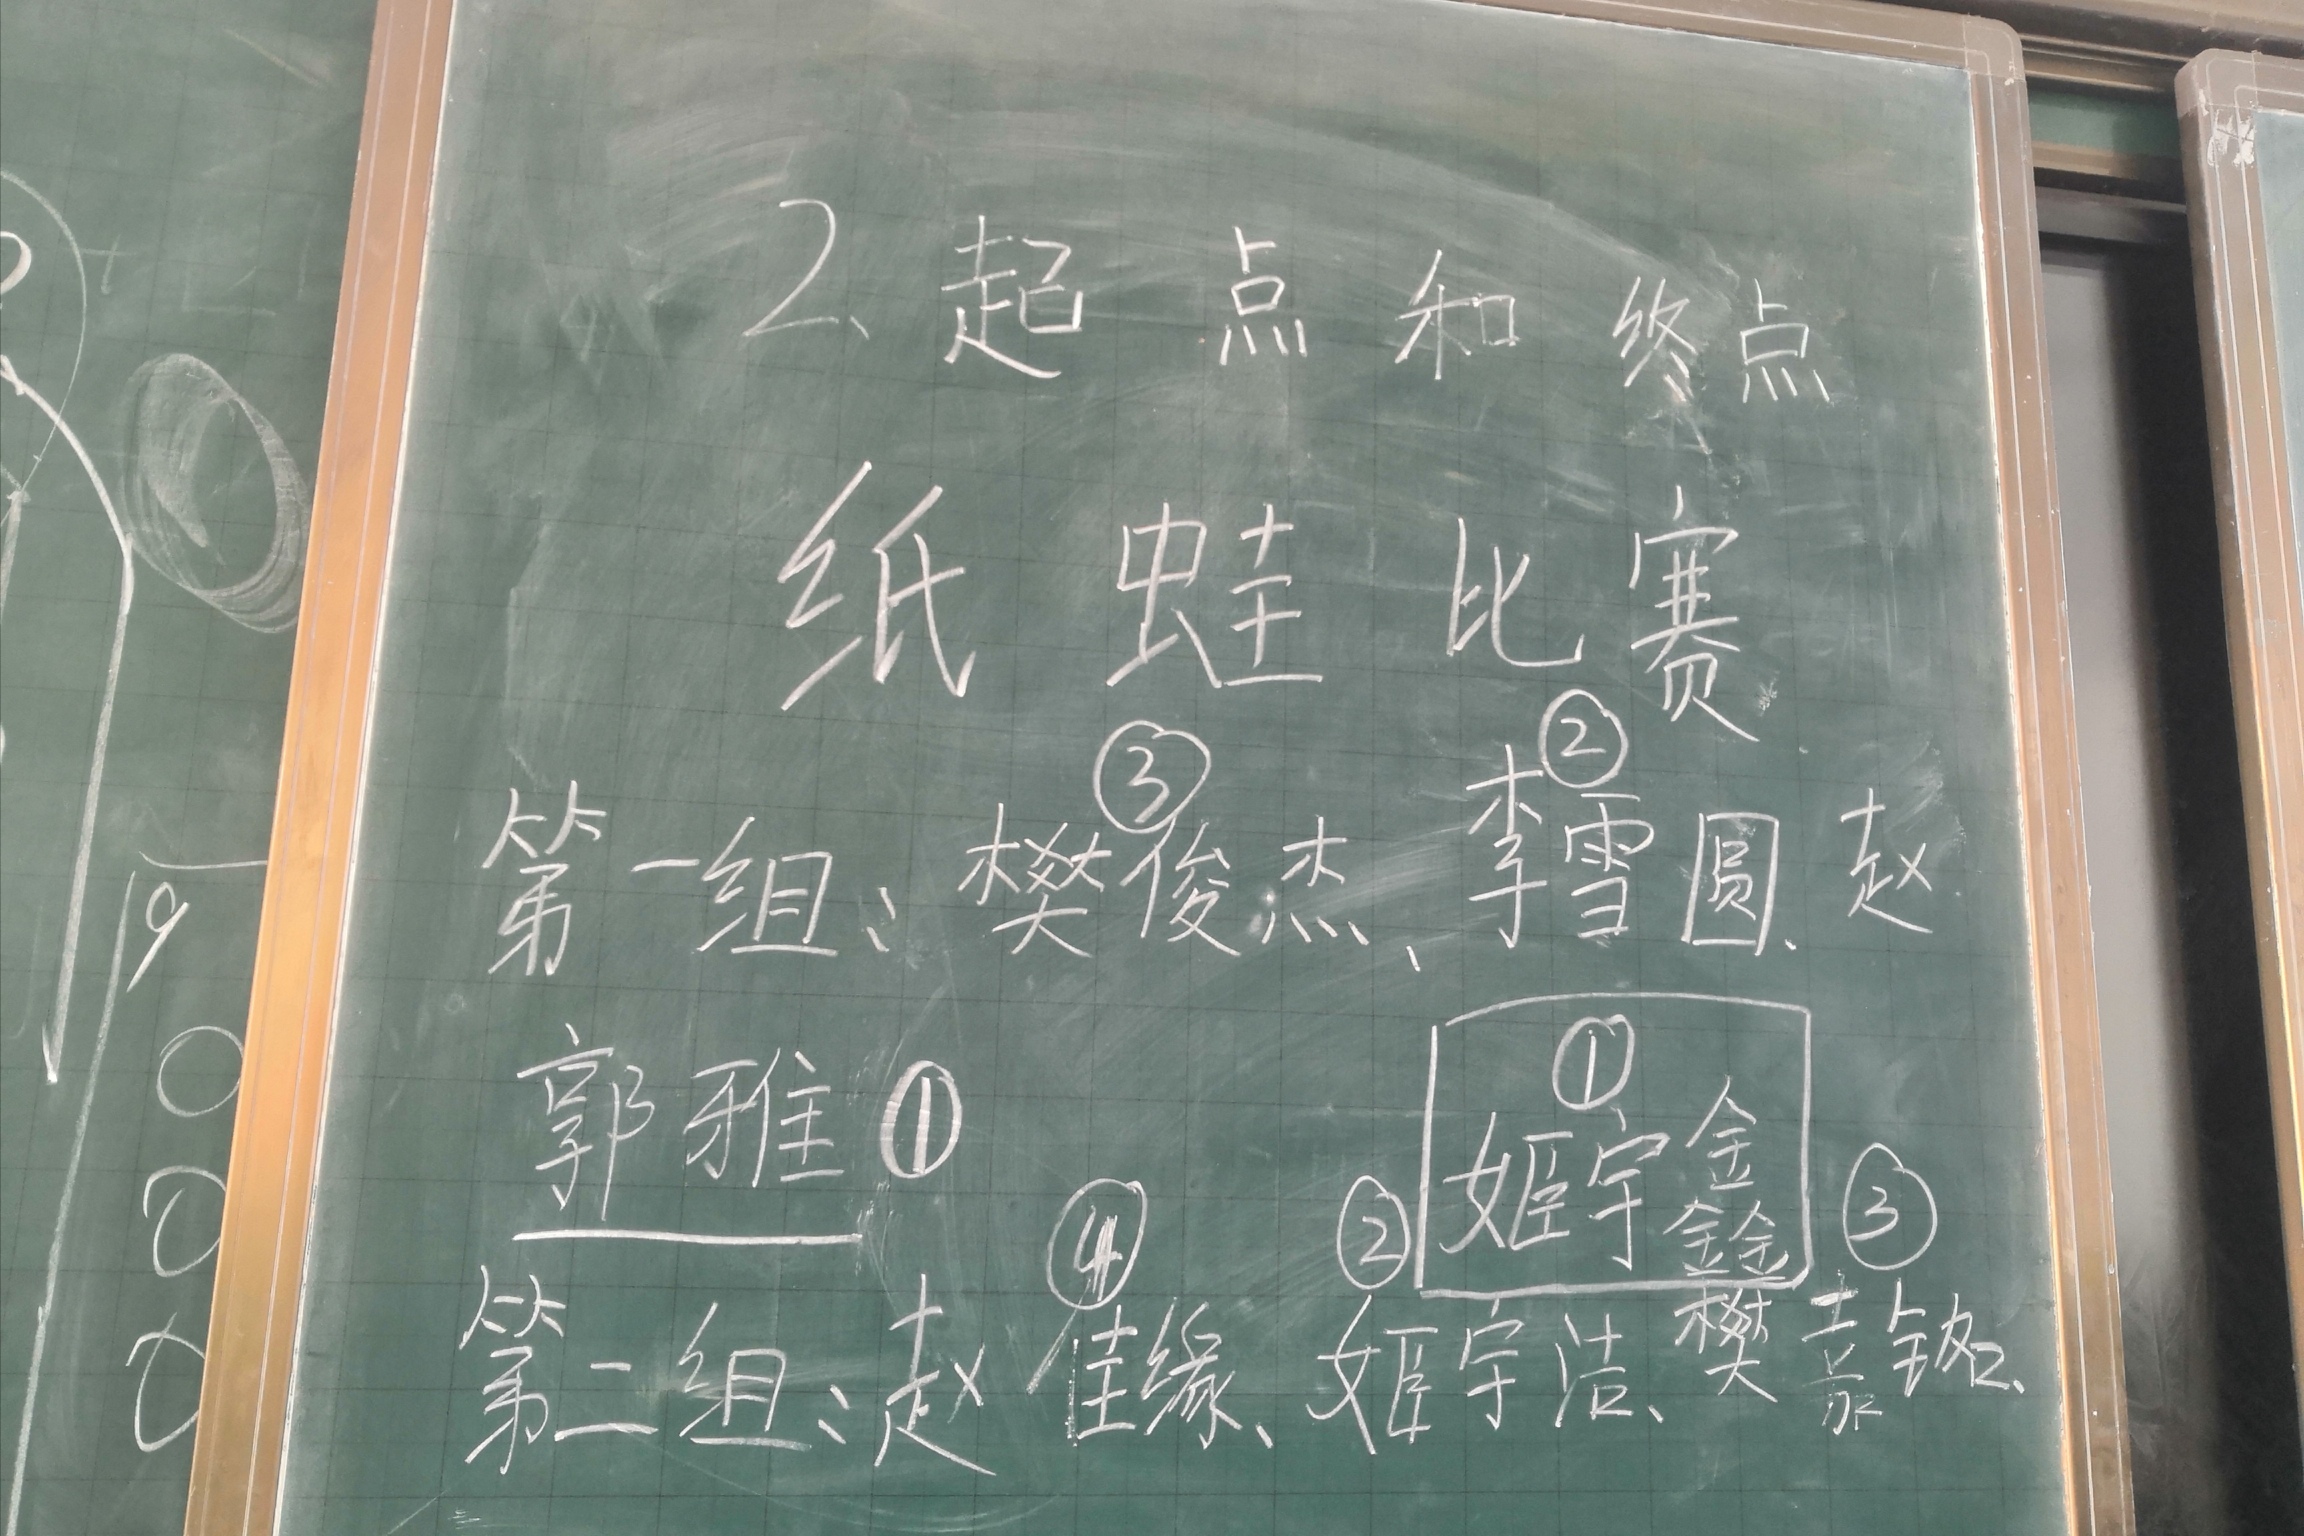 2、起点和终点
纸蛙比赛
③ ②
第一组：樊俊杰、李雪圆、赵
郭雅①
①
姬宇鑫
④ ② ③
第二组：赵佳缘、姬宇洁、樊嘉铭、
9
0
0
0